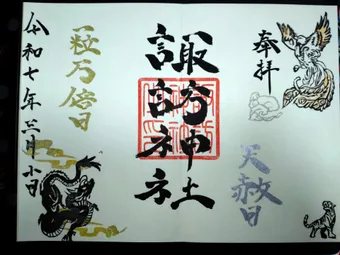 奉拝
天赦日
諏訪神社
一粒万倍日
令和七年三月十日